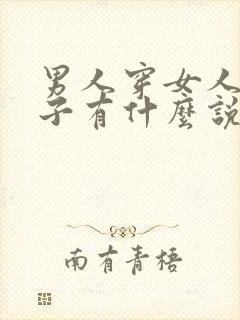 男人穿女人
子有什麼說
南有青梧